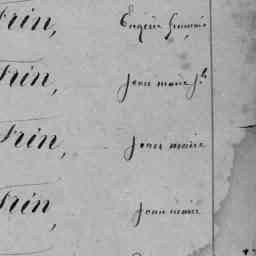 frin, Eugène François
frin, Jean marie fˡˢ
frin, Jean marie
frin, Jean marie